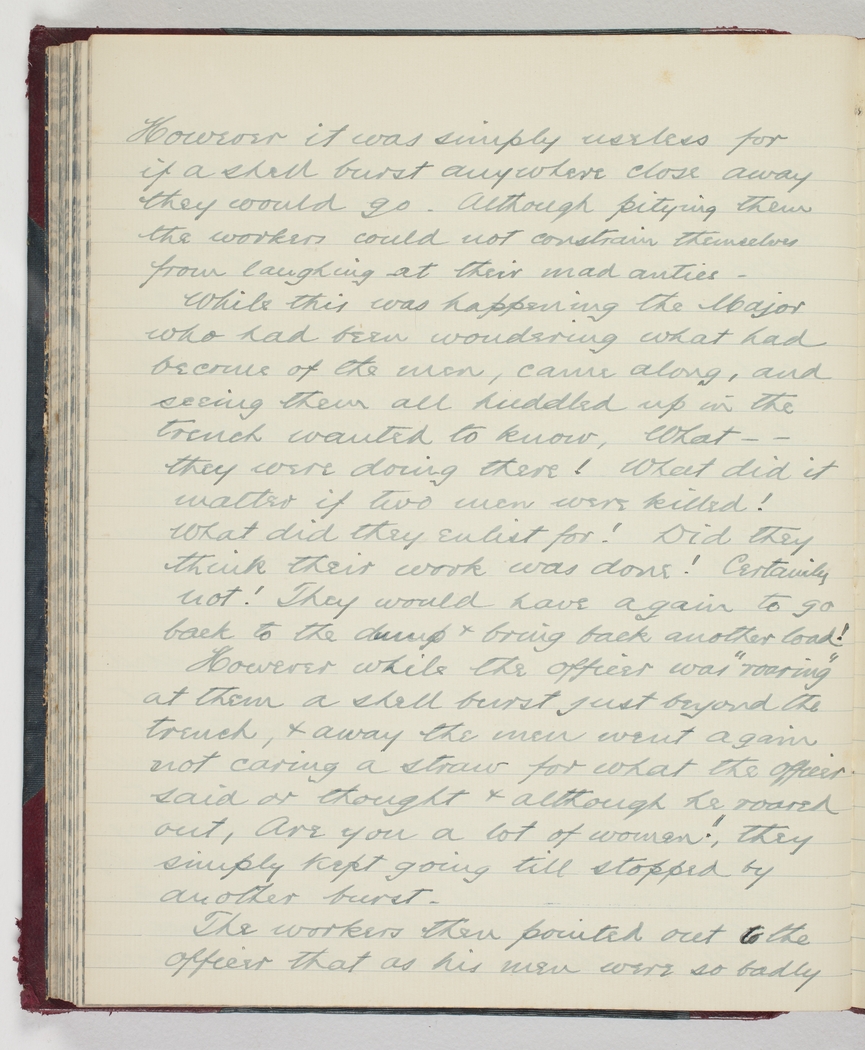 However it was simply useless for
if a shell burst anywhere close away
they would go. Although pitying them
the workers could not constrain themselves
from laughing at their mad antics -
While this was happening the Major
who had been wondering what had
become of the men, came along, and
seeing them all huddled up in the
trench wanted to know, What - -
they were doing there! What did it
matter if two men were killed!
What did they enlist for! Did they
think their work was done! Certainly
not! They would have again to go
back to the dump & bring back another load!
However while the officer was "roaring"
at them a shell burst just beyond the
trench, & away the men went again
not caring a straw for what the officer
said or thought & although he roared
out, Are you a lot of women!", they
simply kept going till stopped by
another burst.
The workers then pointed out to the
officer that as his men were so badly